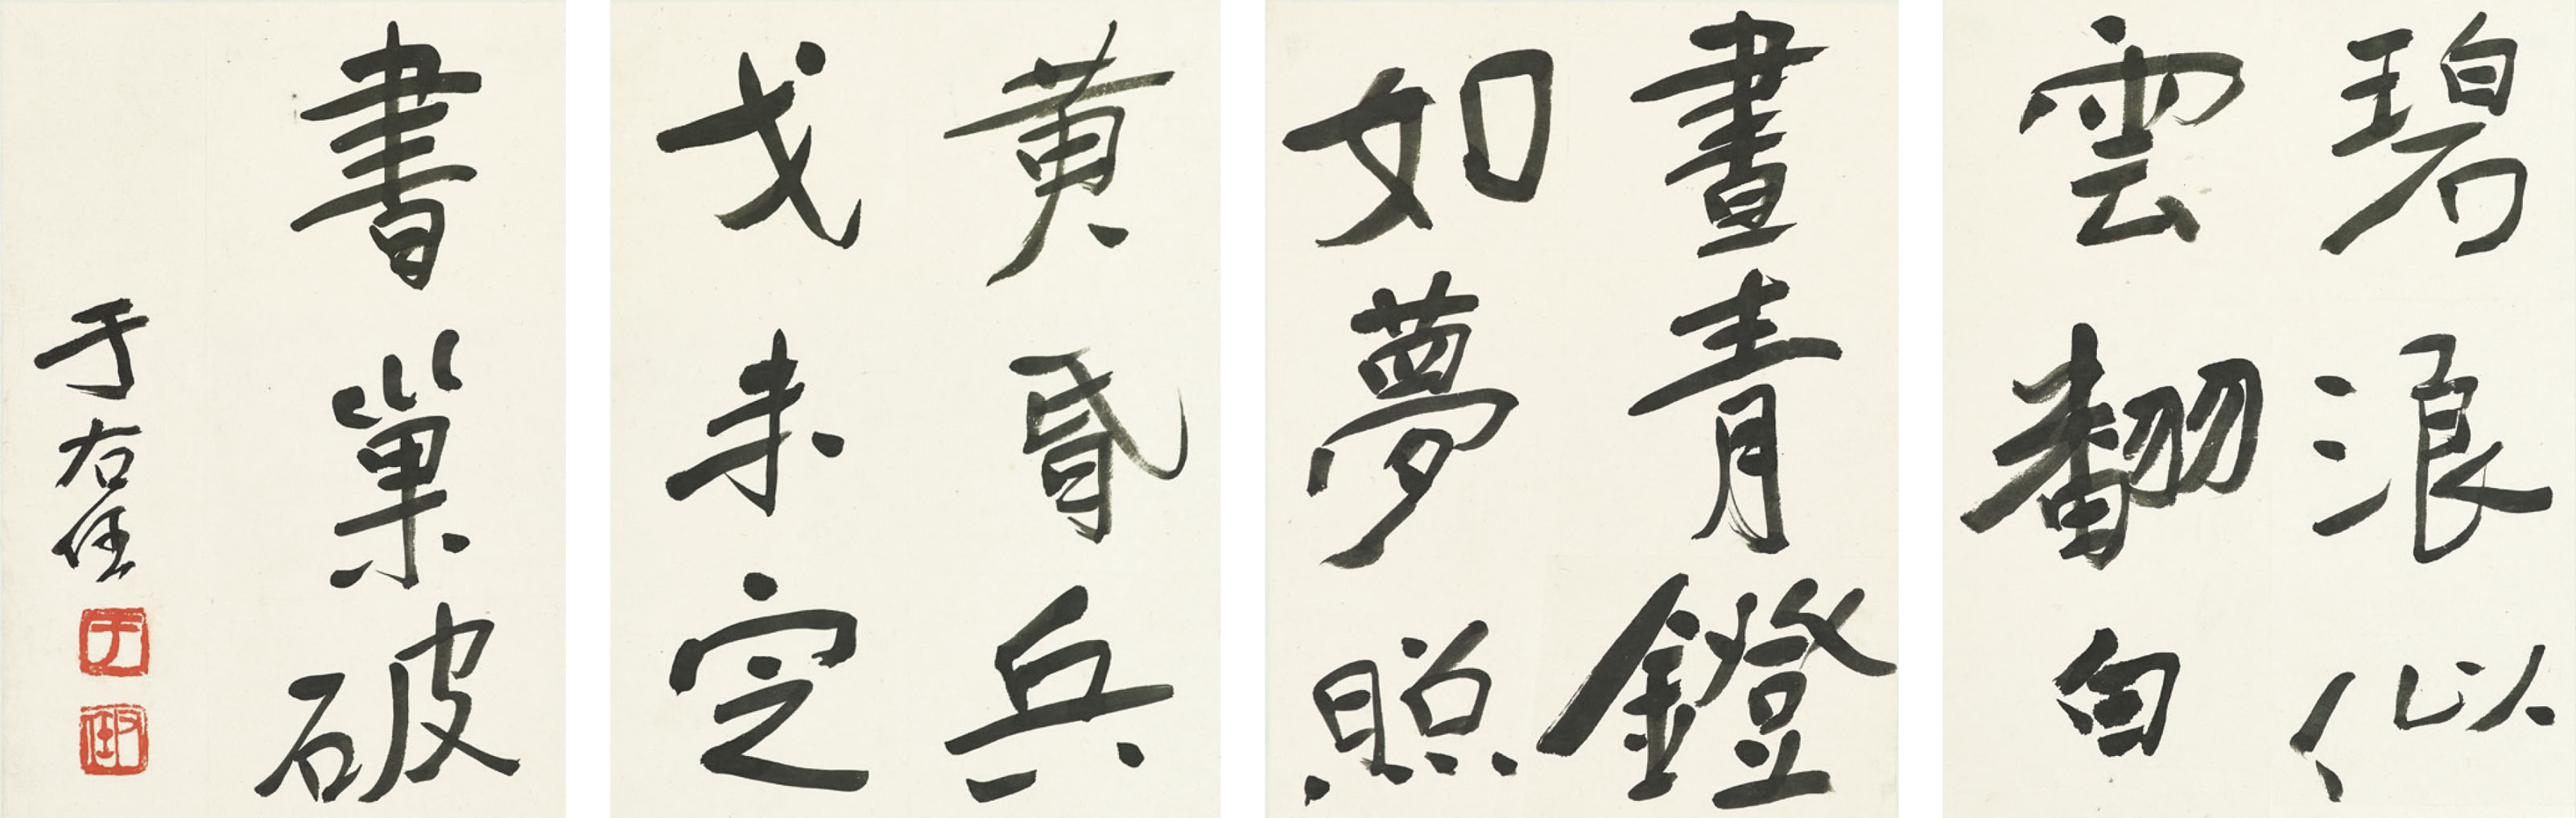 碧浪似
雲翻白
晝青鐙
如夢照
黃昏兵
戈未定
書巢破
于右任
于
右任